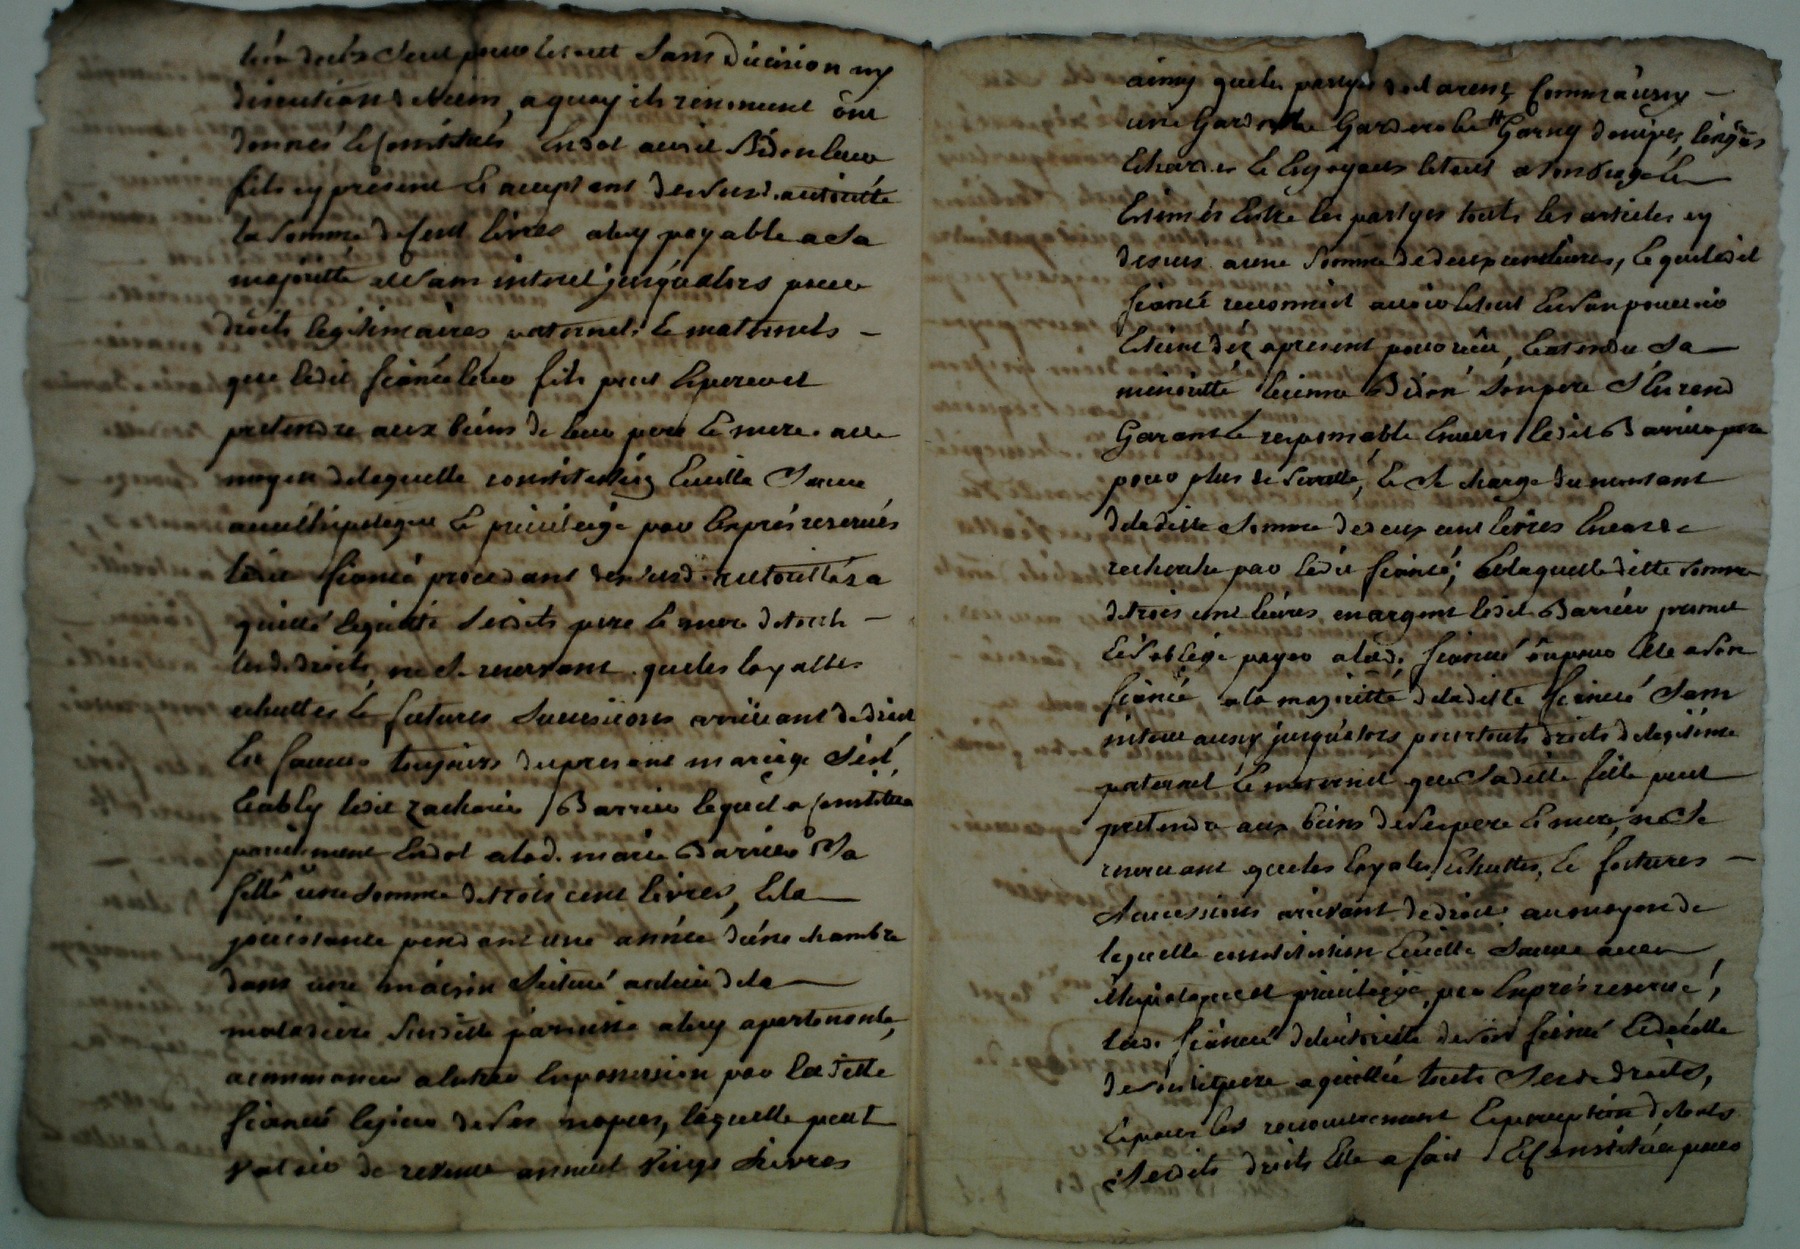 seul pour le tout sans division ny
discution de biens, a quoy ils renoncent ont
donnés et constitués en dot audit Bidon leur
fils cy present et acceptant de susd. autoritté
la somme de cent livres a luy payable a sa
majoritté et sans interet jusqu'alors pour
droits legitimaires paternels et maternels -
que ledit fiancé leur fils peut esperer et
pretendre aux biens de leur pere et mere. au
moyen de laquelle constitution et icelle sauve
aux hipoteque et privileige par exprés reservés
ledit fiancé procedant de susd. autorittés a
quitté et quitte sesdits pere et mere de touts -
lesd. droits, ne se reservant que les loyalles
echuttes et futures successions arrivant de droit
en faveur toujours du present mariage s'est
etably ledit zacharie Barrier lequel a constitué
pareillement en dot a lad. marie Barrier sa
fille une somme de trois cent livres, et la
jouissance pendant une année d'une chambre
dans une maison scituée au lieu de la
maladiere susditte parroisse a luy apartenante,
a commancer a entrer en possession par laditte
fiancée le jour de ses nopces, laquelle peut
valoir de revenu annuel vingt livres
ainsy que les partyes declarent commr aussy -
une Garderobe Garny d'habits, linges
et hardes et les joyaux le tout a son usage
estimés entre les partyes touts les articles cy
dessus a une somme de deux cent livres, et que ledit
fiancé reconnoit avoir le tout en son pouvoir
et tient déz apresent pour reçu, et attendu sa
minoritté etienne Bidon son pere s'en rend
Garant et responsable envers ledit Barrier pere
pour plus de suretté, et se charge du montant
de laditte somme de deux cent livres en cas de
recherche par ledit fiancé; et laquelle ditte somme
de trois cent livres en argent ledit Barrier promet
et s'oblige payer a lad. fiancée ou pour elle a son
fiancé, a la majoritté de laditte fiancée sans
interet aussy jusqu'alors pour touts droits de legitime
paternel et maternel que saditte fille peut
pretendre aux biens de ses pere et mere, ne se
reservant que les loyales echuttes, et futures -
successions arrivant de droit au moyen de
laquelle constitution et icelle sauve aux
hipoteque et privileige par exprés reservé,
lad. fiancée de l'autoritté de son fiancé et de celle
de sondit pere a quitté touts sesd. droits,
et pour les recouvrement et perception de touts
sesdits droits elle a fait et constitué pour